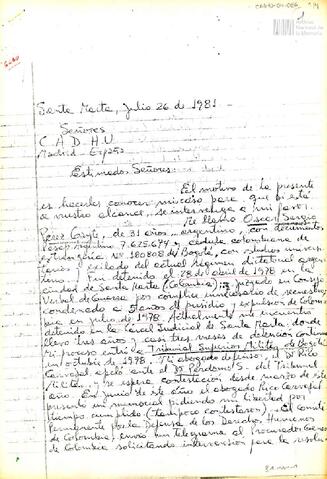 Archivo
Nacional de
la Memoria
Santa Marta, Julio 26 de 1981.
Señores
C A D H U
Madrid - España
Estimados Señores:
El motivo de la presente
es hacerles conocer mi caso para que, si está
a vuestro alcance, se interceda a mi favor.
Me llamo Oscar Sergio
de 31 años, argentino, con documentos
7.625.674 y cédula colombiana de
extranjería Nº 180808 de Bogotá, con
y exilado del actual régimen dictatorial argen-
tino. Fui detenido el 28 de abril de 1978 en la
ciudad de Santa Marta (Colombia); juzgado en Consejo
Verbal de Guerra por complice de secuestro,
condenado a años de presidio y expulsión de Colom-
bia en Julio de 1978. Actualmente me encuentro
detenido en la Carcel Judicial de Santa Marta, donde
llevo tres años y casi tres meses de detención continua.
Mi proceso entró al Tribunal Superior Militar de Bogotá
en octubre de 1978. Mi abogado defensor, el Dr Rico
Carvajal apeló ante el Dr Perdomo S. del Tribunal
Militar, y se espera contestación desde marzo de este
año. En Junio de este año el abogado Rico Carvajal
presentó un memorial pidiendo mi libertad por
tiempo cumplido (tampoco contestaron). El Comité
Permanente por la Defensa de los Derechos Humanos
de Colombia, envió un telegrama al Procurador General
de Colombia solicitando intervención para la resolu-